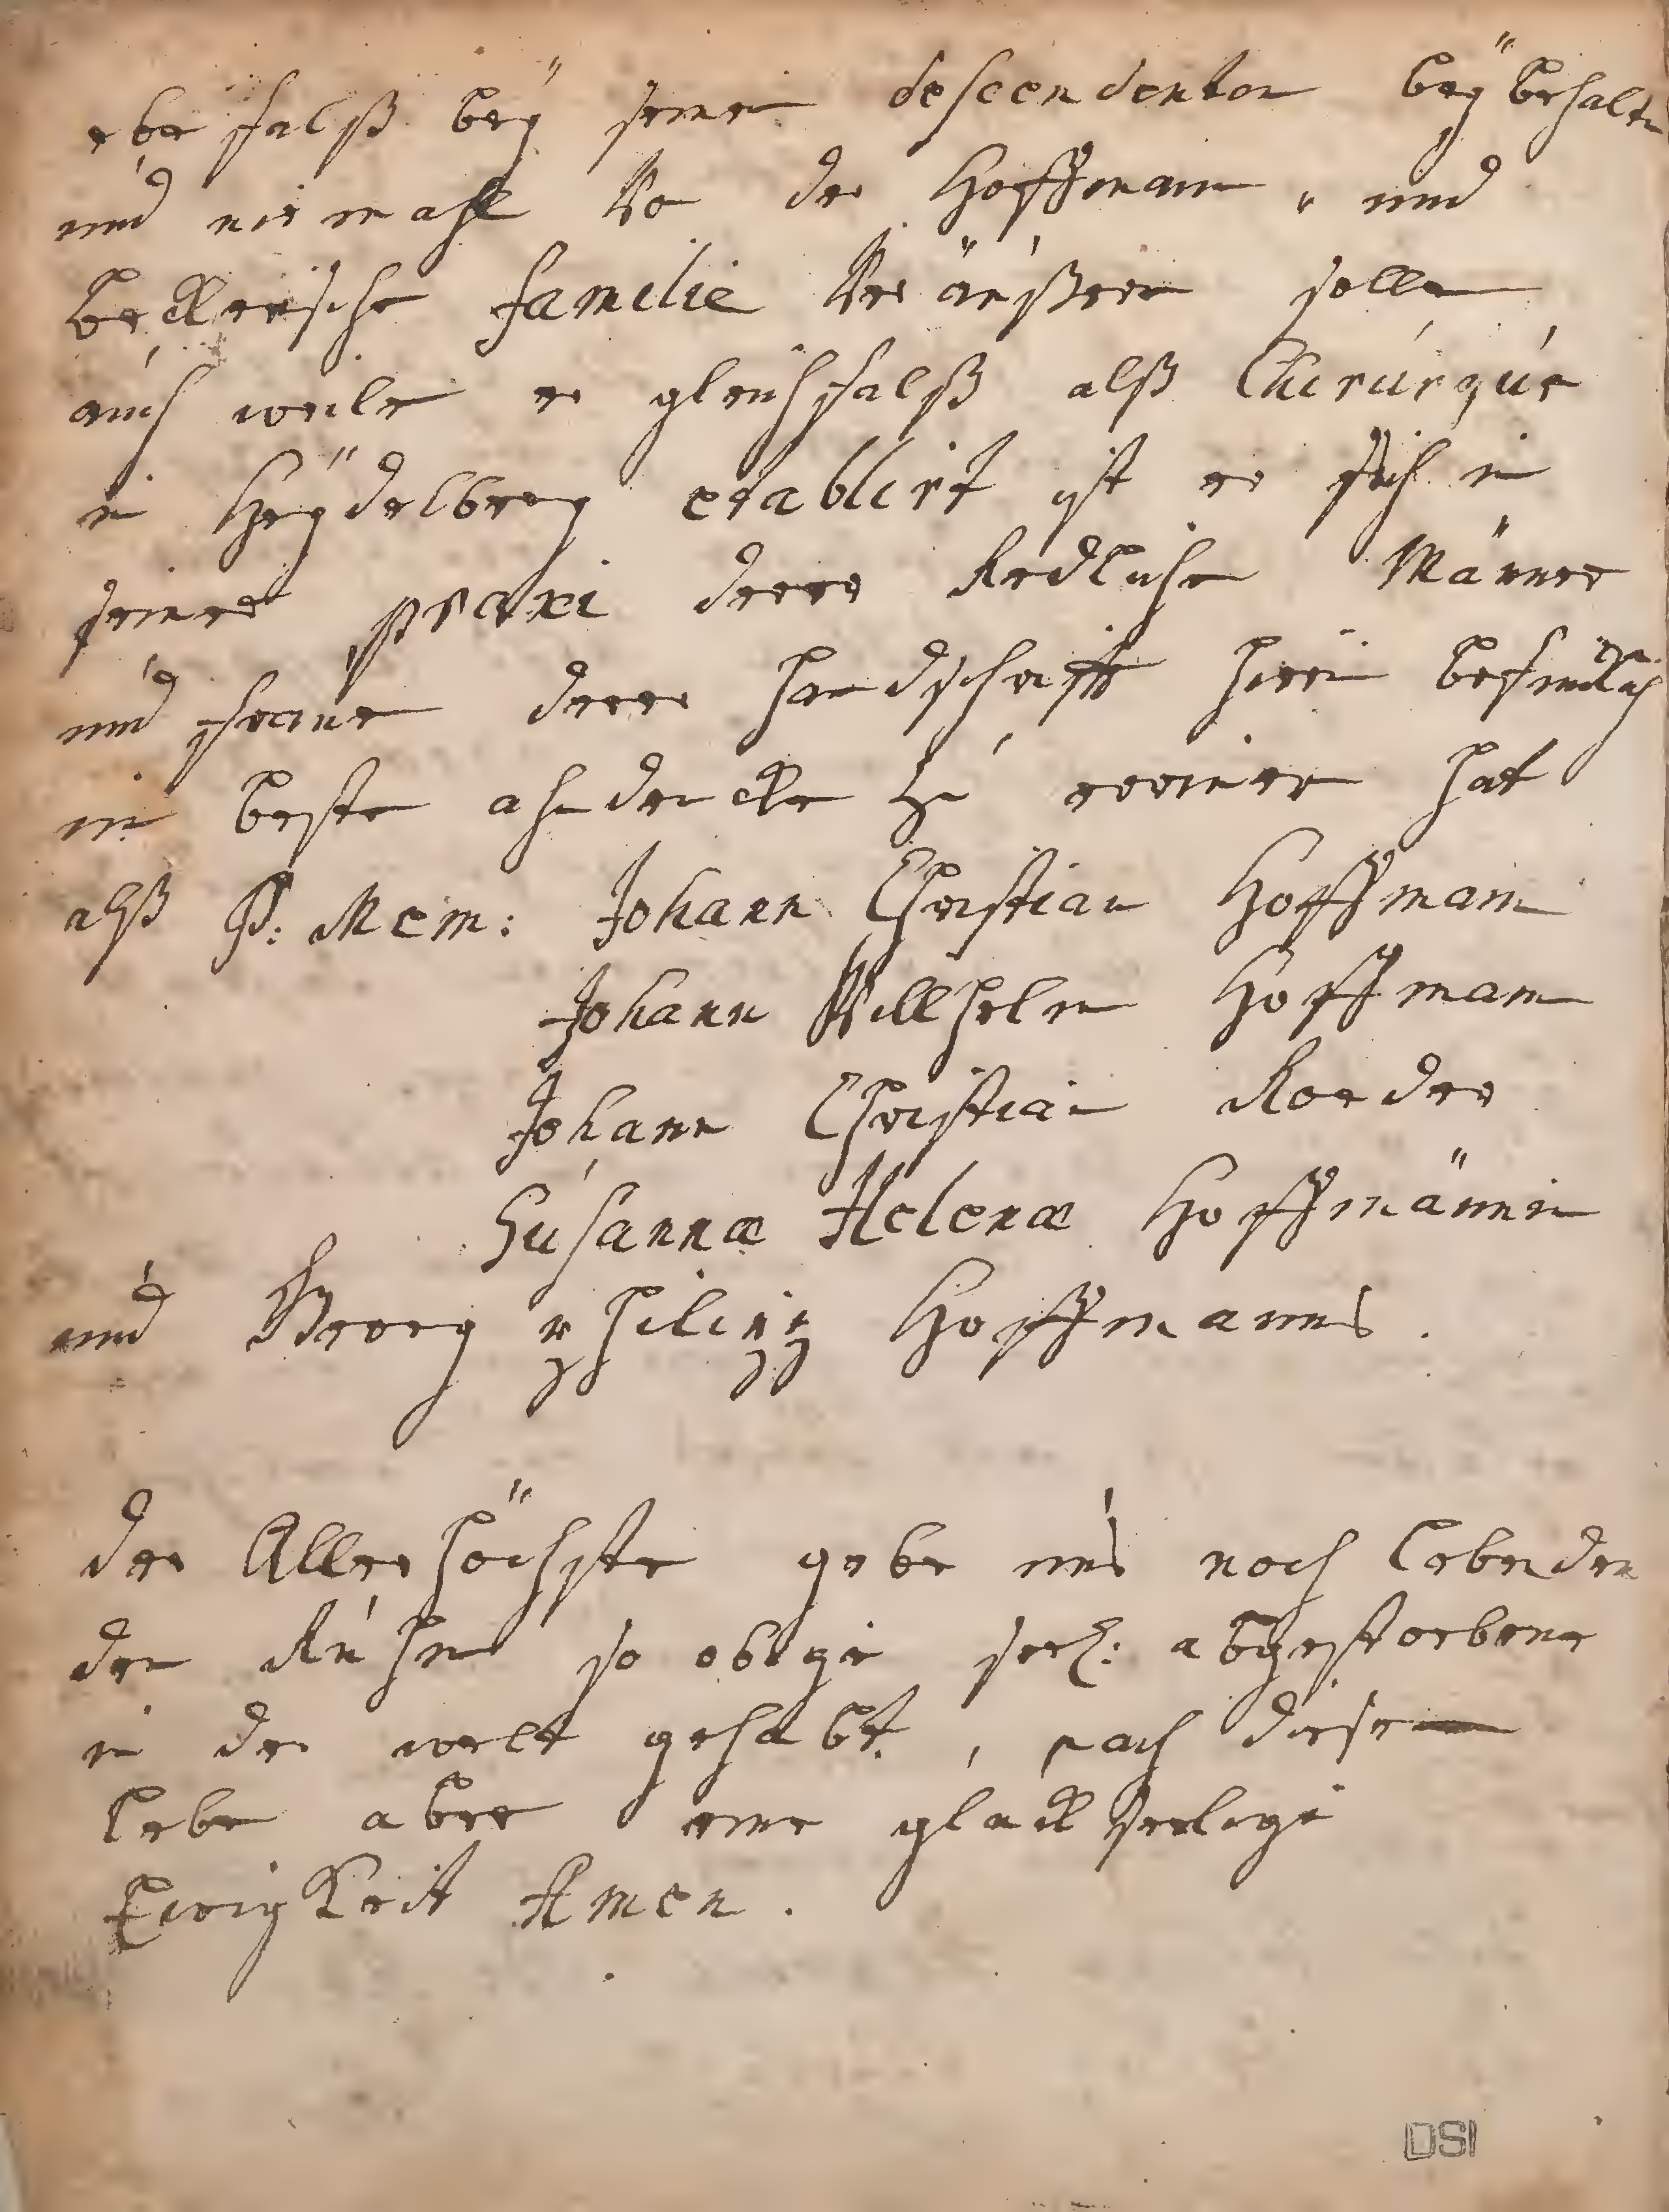 ebe falß beÿ seine descendenten beÿ behalte
und niemahl vo der Hoffmann „ und
beckerische familie veräußern solle
auch weile er gleichfalß alß Chirurgus
in Heÿdelberg etablirt ist er sich in
seiner praxi derer Redliche Männer
und deren handschrifft hirin befindlich
in beste ahndencke zu erinern hat
alß P: Mem: Johann Christian Hoffmann
Johann Willhelm Hoffmann
Johann Christian Roeder
Susannæ Helenæ Hoffmännin
und Georg philipp Hoffmanns.
der Allerhöchste gebe uns noch Lebenden
den Ruhm so obige seel: abgestorbene
in der welt gehabt, nach diesem
Lebe aber eine glückseelige
Ewigkeit Amen.
DSI